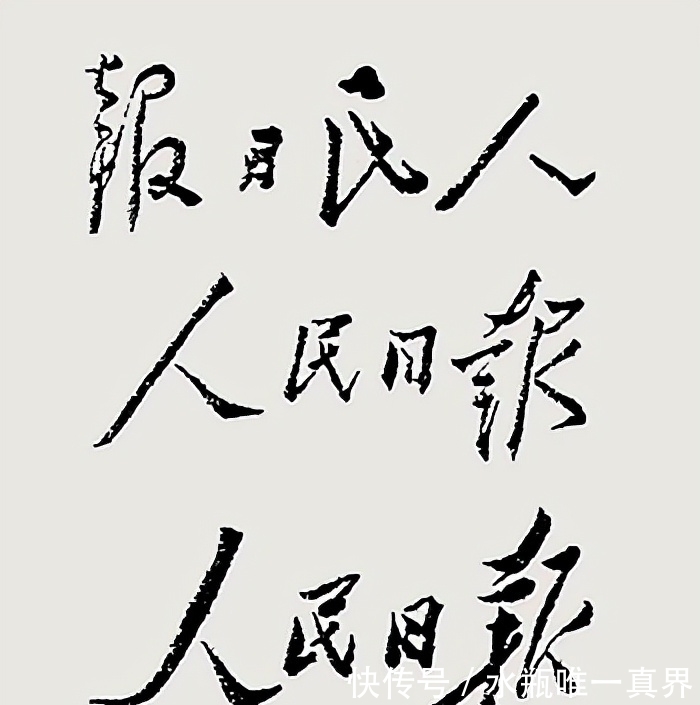 人民日報
人民日報
人民日報
快传号/水瓶唯一真界